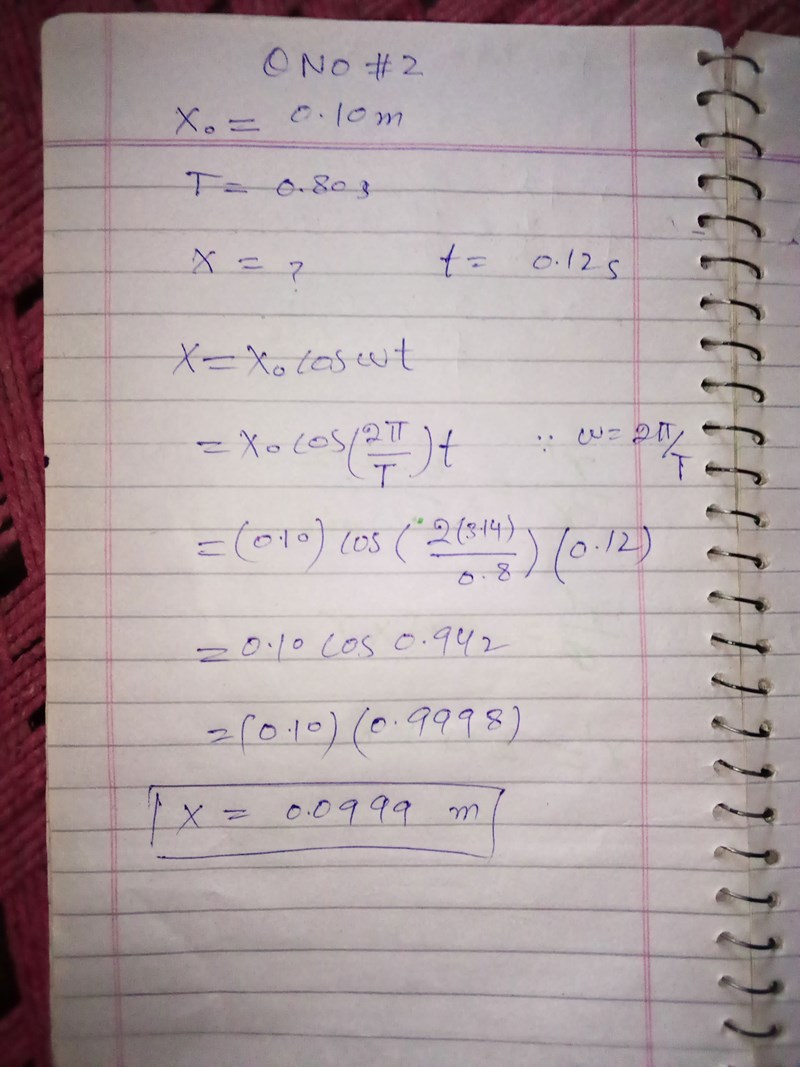 Q NO #2
X₀ = 0.10m
T = 0.80s
X = ? t = 0.12s
X = X₀ cos ωt
= X₀ cos(2π/T)t ∵ ω = 2π/T
= (0.10) cos (2(3.14)/0.8) (0.12)
= 0.10 cos 0.942
= (0.10) (0.9998)
X = 0.0999 m